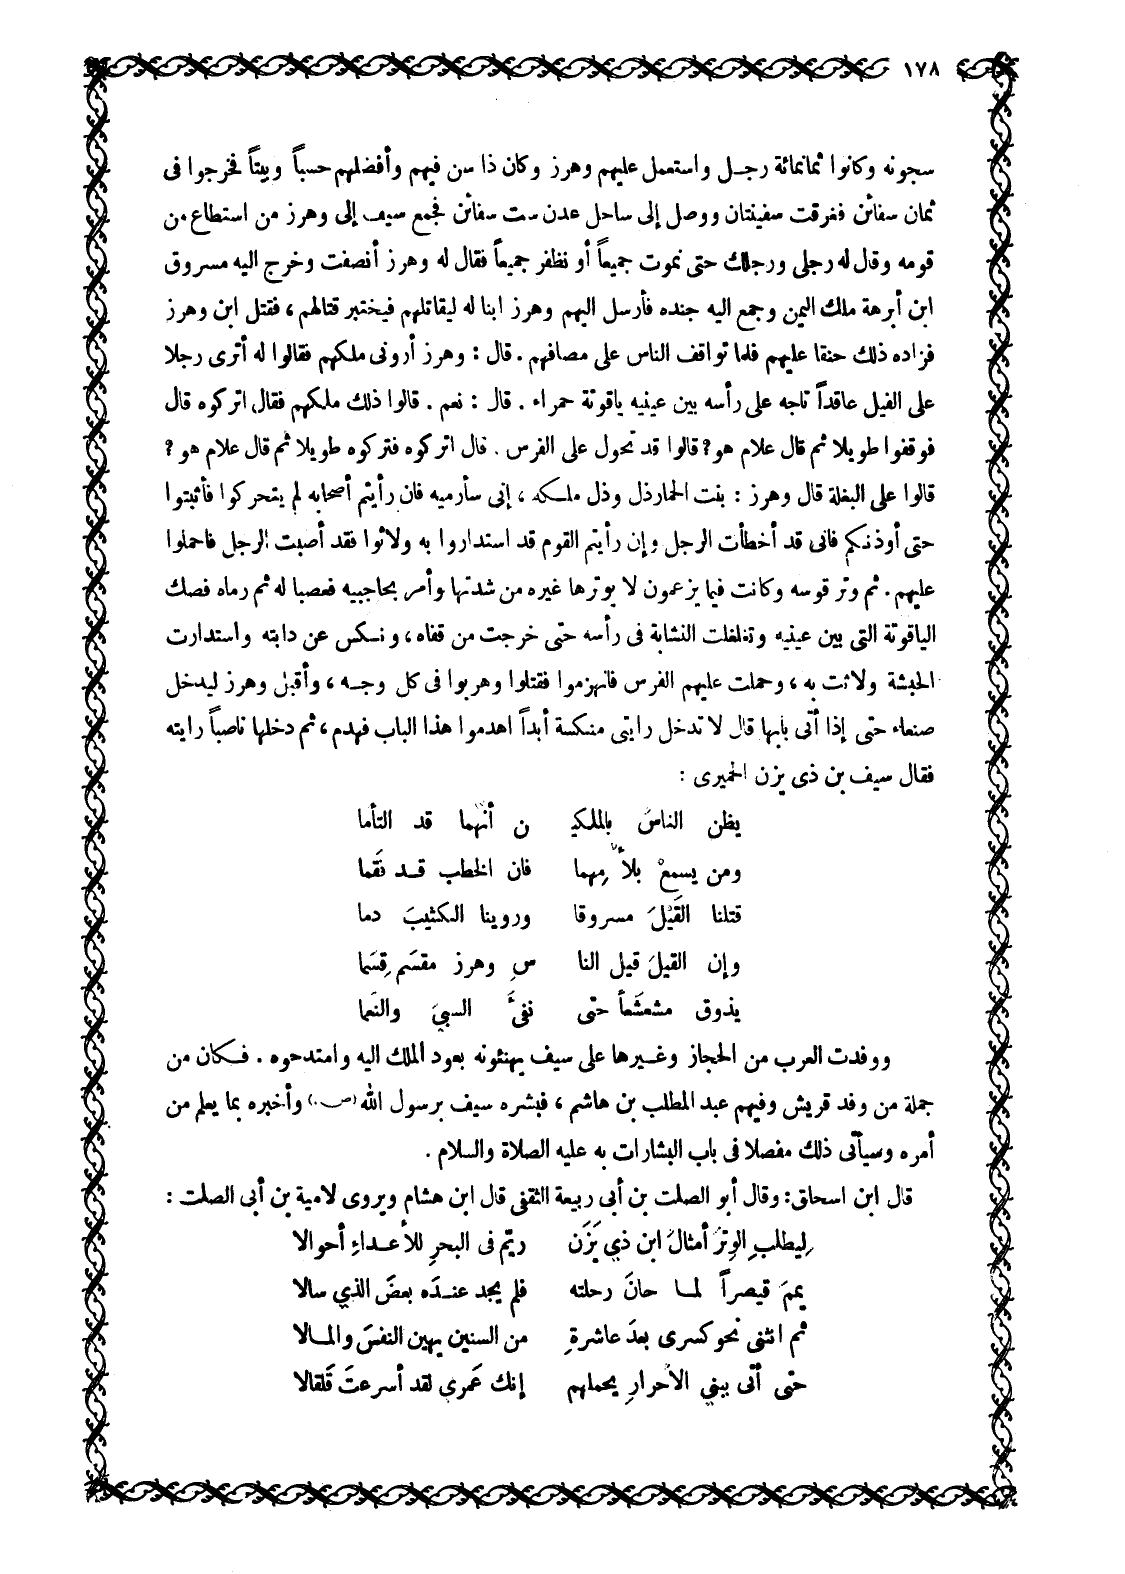 ١٧٨
سجونه وكانوا ثمانمائة رجل واستعمل عليهم وهرز وكان ذا سن فيهم وأفضلهم حسباً وبيتاً فخرجوا فى
ثمان سفائن فغرقت سفينتان ووصل إلى ساحل عدن ست سفائن فجمع سيف إلى وهرز من استطاع من
قومه وقال له رجلى ورجلك حتى نموت جميعاً أو نظفر جميعاً فقال له وهرز أنصفت وخرج اليه مسروق
ابن أبرهة ملك اليمن وجمع اليه جنده فأرسل اليهم وهرز ابنا له ليقاتلهم فيختبر قتالهم ، فقتل ابن وهرز
فزاده ذلك حنقا عليهم فلما تواقف الناس على مصافهم . قال : وهرز أرونى ملكهم فقالوا له أترى رجلا
على الفيل عاقداً تاجه على رأسه بين عينيه ياقوتة حمراء . قال : نعم . قالوا ذلك ملكهم فقال اتركوه قال
فوقفوا طويلا ثم قال علام هو ? قالوا قد تحول على الفرس . قال اتركوه فتركوه طويلا ثم قال علام هو ?
قالوا على البغلة قال وهرز : بنت الحمار ذل وذل ملكه ، إنى سأرميه فان رأيتم أصحابه لم يتحركوا فأثبتوا
حتى أوذنكم فانى قد أخطأت الرجل وإن رأيتم القوم قد استداروا به ولاثوا فقد أصبت الرجل فاحملوا
عليهم . ثم وتر قوسه وكانت فيما يزعمون لا يوترها غيره من شدتها وأمر بحاجبيه فعصبا له ثم رماه فصك
الياقوتة التى بين عينيه وتغلغلت النشابة فى رأسه حتى خرجت من قفاه ، ونكس عن دابته واستدارت
الحبشة ولاثت به ، وحملت عليهم الفرس فانهزموا فقتلوا وهربوا فى كل وجه ، وأقبل وهرز ليدخل
صنعاء حتى إذا أتى بابها قال لا تدخل رايتى منكسة أبداً اهدموا هذا الباب فهدم ، ثم دخلها ناصباً رايته
فقال سيف بن ذى يزن الحميرى :
يظن الناسُ بالملكيـ ن أنهما قد التأما
ومن يسمعْ بلأمهما فان الخطب قد نقَما
قتلنا القَيْلَ مسروقا وروينا الكثيبَ دما
وإن القيلَ قيل النا سِ وهرز مقسَم قِسَما
يذوق مشعشَعاً حتى نفئَ السبيَ والنَعما
ووفدت العرب من الحجاز وغيرها على سيف يهنئونه بعود الملك اليه وامتدحوه . فكان من
جملة من وفد قريش وفيهم عبد المطلب بن هاشم ، فبشره سيف برسول الله (ص.) وأخبره بما يعلم من
أمره وسيأتى ذلك مفصلا فى باب البشارات به عليه الصلاة والسلام .
قال ابن اسحاق : وقال أبو الصلت بن أبى ربيعة الثقفى قال ابن هشام ويروى لامية بن أبى الصلت :
لِيطلبِ الوِترَ أمثالُ ابن ذي يَزَن ريّم فى البحرِ للأعداءِ أحوالا
يممَ قيصراً لما حانَ رحلته فلم يجد عندَه بعضَ الذي سالا
ثم انثنى نحو كسرى بعدَ عاشرةِ من السنين يهين النفسَ والمالا
حتى أتى ببني الأحرارِ يحملهم إنك عَمري لقد أسرعتَ قَلقالا